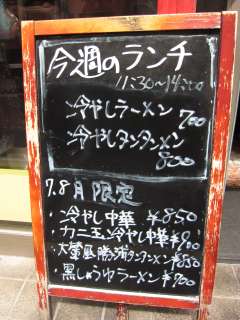 今週のランチ
11:30~14:00
冷やしラーメン
700
冷やしタンタンメン
800
7.8月限定
・冷やし中華 ¥850
・カニ玉冷やし中華 ¥900
・大葉風勝浦タンタンメン ¥850
・黒しょうゆラーメン ¥700